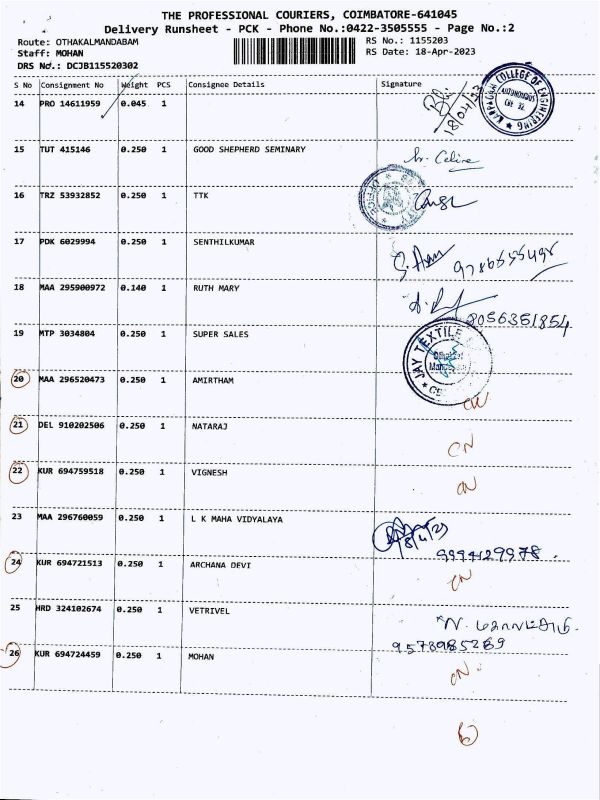 THE PROFESSIONAL COURIERS, COIMBATORE-641045
Delivery Runsheet - PCK - Phone No.:0422-3505555 - Page No.:2
Route: OTHAKALMANDABAM RS No.: 1155203
Staff: MOHAN RS Date: 18-Apr-2023
DRS No.: DCJB115520302
S No Consignment No Weight PCS Consignee Details Signature
14 PRO 14611959 0.045 1 18/04/23
KARPAGAM COLLEGE OF ENGINEERING
AUTONOMOUS
15 TUT 415146 0.250 1 GOOD SHEPHERD SEMINARY Sr. Celine
16 TRZ 53932852 0.250 1 TTK
SECURITY OFFICE
17 PDK 6029994 0.250 1 SENTHILKUMAR
18 MAA 295900972 0.140 1 RUTH MARY
8056351854
19 MTP 3034804 0.250 1 SUPER SALES
JAY TEXTILE
20 MAA 296520473 0.250 1 AMIRTHAM CN
21 DEL 910202506 0.250 1 NATARAJ CN
22 KUR 694759518 0.250 1 VIGNESH CN
23 MAA 296760059 0.250 1 L K MAHA VIDYALAYA
24 KUR 694721513 0.250 1 ARCHANA DEVI CN
25 HRD 324102674 0.250 1 VETRIVEL
9578985289
26 KUR 694724459 0.250 1 MOHAN CN